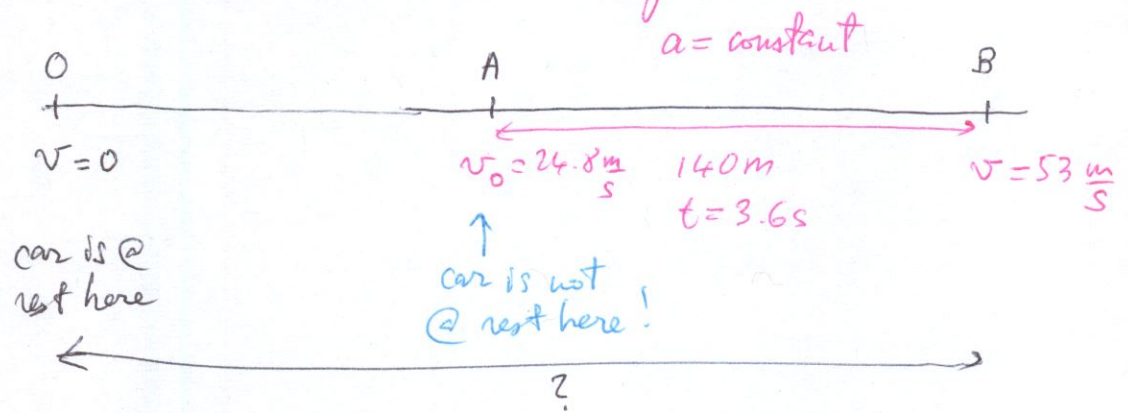 a = constant
O A B
v = 0 v₀ = 24.8 m/s 140m v = 53 m/s
t = 3.6s
car is @
rest here
car is not
@ rest here!
?